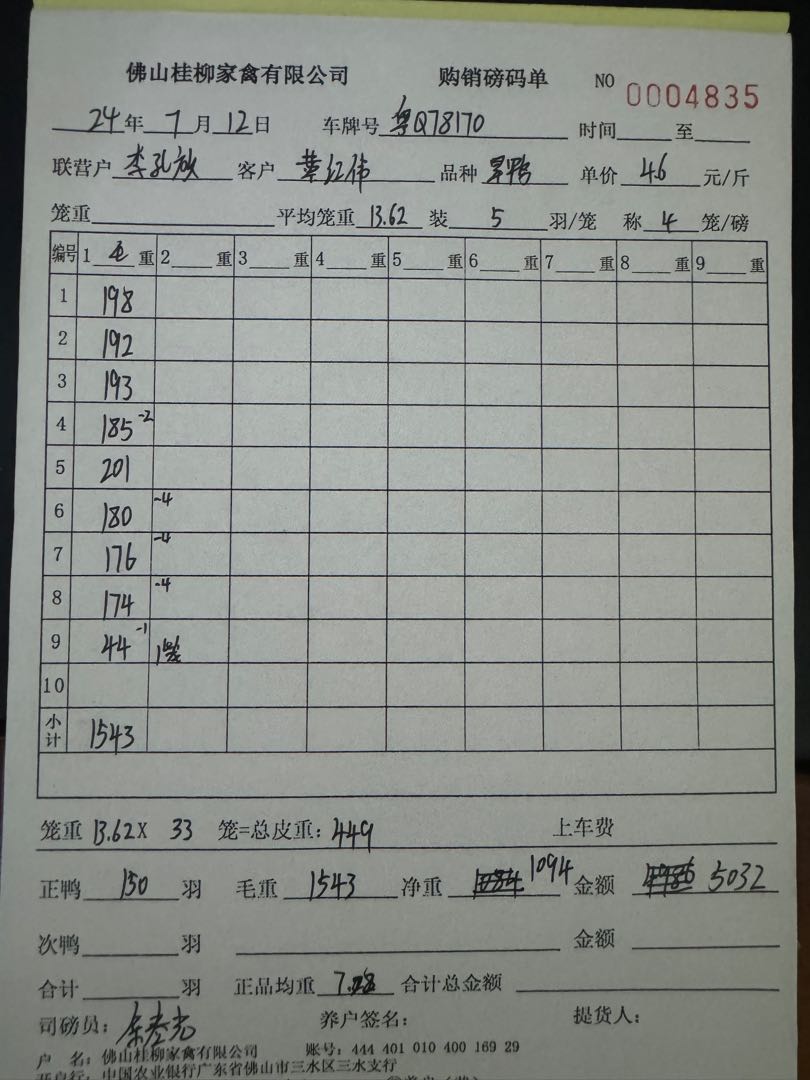 佛山桂柳家禽有限公司 购销磅码单 NO 0004835
24年7月12日 车牌号粤Q78170 时间 至
联营户李孔放 客户 黄红伟 品种旱鸭 单价 4.6 元/斤
笼重 平均笼重13.62装 5 羽/笼 称 4 笼/磅
编号 1 毛 重 2 重 3 重 4 重 5 重 6 重 7 重 8 重 9 重
1 198
2 192
3 193
4 185 -2
5 201
6 180 -4
7 176 -4
8 174 -4
9 44 -1 1笼
10
小计 1543
笼重 13.62X 33 笼=总皮重:449 上车费
正鸭 150 羽 毛重 1543 净重 1094 金额 5032
次鸭 羽 金额
合计 羽 正品均重 7.28 合计总金额
司磅员: 养户签名: 提货人:
户 名:佛山桂柳家禽有限公司 账号:444 401 010 400 169 29
开户行:中国农业银行广东省佛山市三水区三水支行